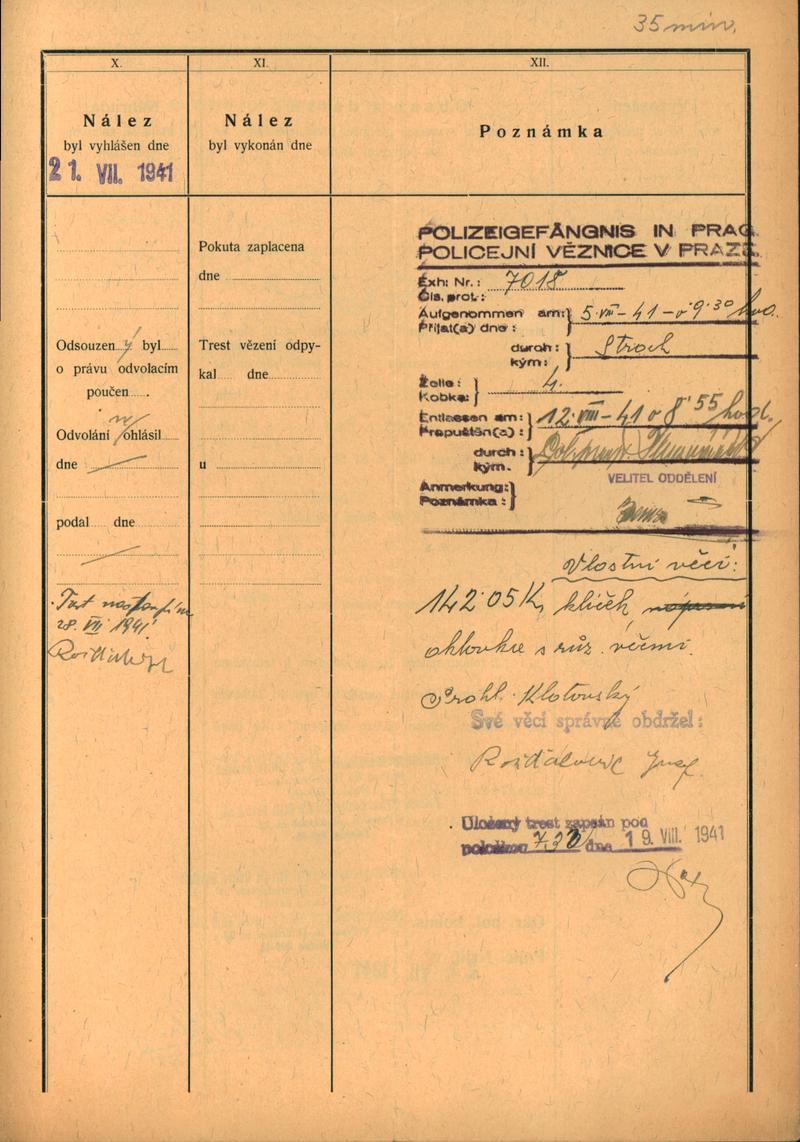 35 min,
X.
Nález
byl vyhlášen dne
21. VII. 1941
XI.
Nález
byl vykonán dne
XII.
Poznámka
Odsouzen ý byl
o právu odvolacím
poučen
Odvolání ohlásil
dne
podal dne
28. VII 1941
Pokuta zaplacena
dne
Trest vězení odpy-
kal dne
u
POLIZEIGEFÄNGNIS IN PRAG.
POLICEJNÍ VĚZNICE V PRAZE.
Exh: Nr.: 7018
Čís. prot.:
Aufgenommen am: 5. VIII - 41 - v 9'30 hod.
Přijat(a) dne:
durch:
kým:
Zelle: 4.
Kobka:
Entlassen am: 12. VIII - 41 v 8'55 hod.
Propuštěn(a):
durch:
kým.
VELITEL ODDĚLENÍ
Anmerkung:
Poznámka:
Vlastní věci:
142.05 K, klíček
s růz. věcmi.
Prohl. Klatovský
Své věci správně obdržel:
Josef
Uložený trest zapsán pod
položkou dne 19. VIII. 1941